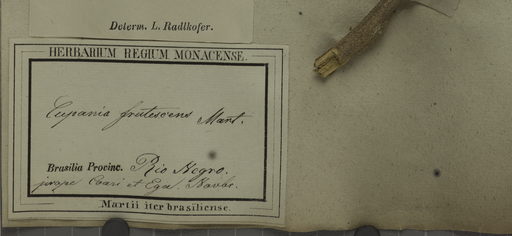 Determ. L. Radlkofer.
HERBARIUM REGIUM MONACENSE.
Cupania frutescens Mart.
Brasilia Provinc. Rio Negro.
prope Coari et Ega.
Martii iter brasiliense.